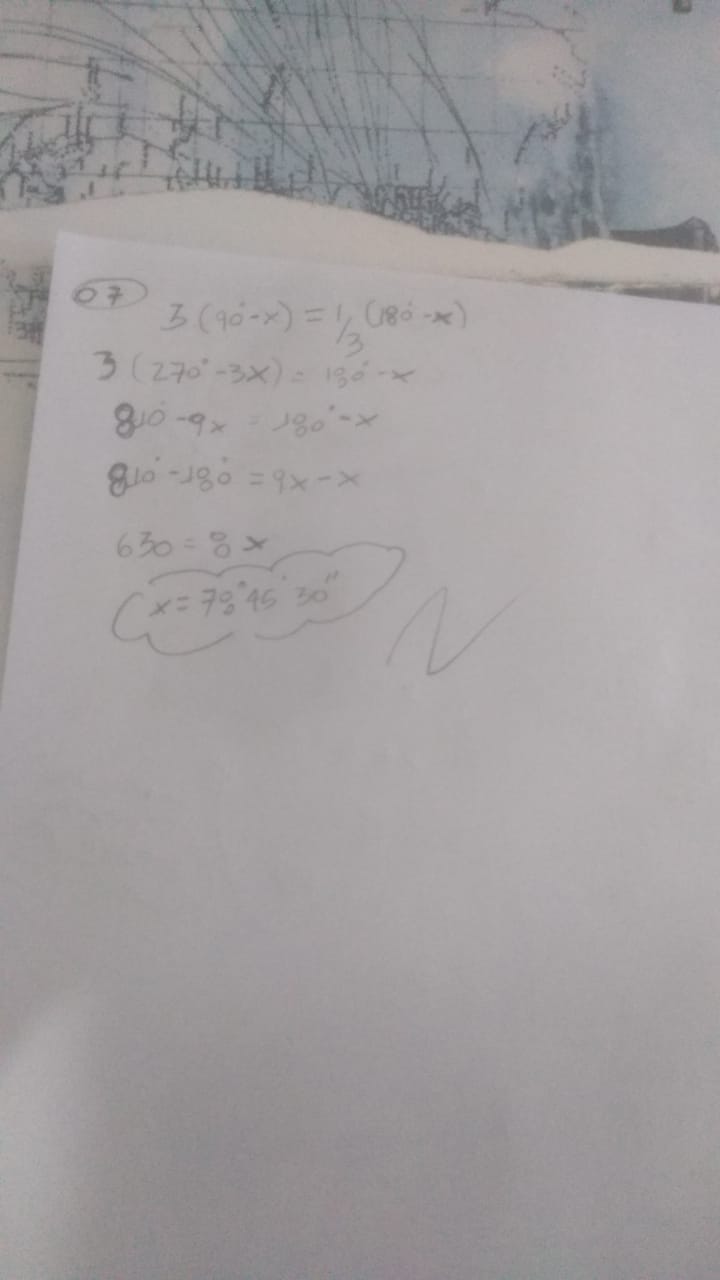 07
3(90°-x) = 1/3 (180°-x)
3(270°-3x) = 180°-x
810°-9x = 180°-x
810°-180° = 9x-x
630 = 8x
x = 78° 45' 30"